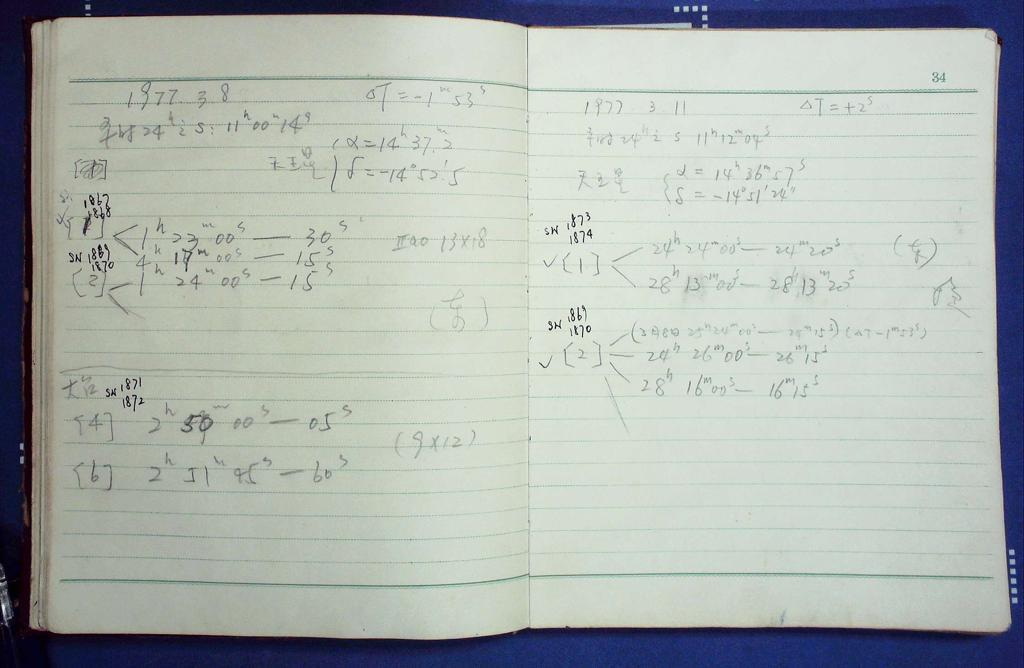 1977 3 8 ΔT = -1ᵐ 53ˢ
24ʰ S: 11ʰ 00ᵐ 14ˢ
天王星 α = 14ʰ 37ᵐ.2
δ = -14° 52'.5
1867
1868
1ʰ 23ᵐ 00ˢ — 30ˢ
4ʰ 17ᵐ 00ˢ — 15ˢ
SN 1869
1870
[2] 1ʰ 24ᵐ 00ˢ — 15ˢ
IIao 13×18
(东)
SN 1871
1872
[4] 2ʰ 50ᵐ 00ˢ — 05ˢ
(9×12)
[6] 2ʰ 51ᵐ 45ˢ — 60ˢ
34
1977 3. 11 ΔT = +2ˢ
24ʰ S 11ʰ 12ᵐ 04ˢ
天王星 α = 14ʰ 36ᵐ 57ˢ
δ = -14° 51' 24"
SN 1873
1874
✓ [1] 24ʰ 24ᵐ 00ˢ — 24ᵐ 20ˢ (东)
28ʰ 13ᵐ 00ˢ — 28ʰ 13ᵐ 20ˢ
SN 1869
1870
(3月8日 25ʰ 24ᵐ 00ˢ — 24ᵐ 15ˢ) (ΔT -1ᵐ 53ˢ)
✓ [2] 24ʰ 26ᵐ 00ˢ — 26ᵐ 15ˢ
28ʰ 16ᵐ 00ˢ — 16ᵐ 15ˢ